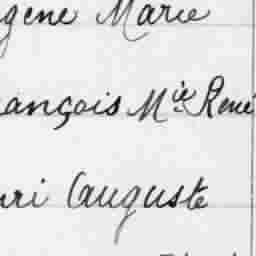 gene Marie
ançois Mie René
ri Auguste